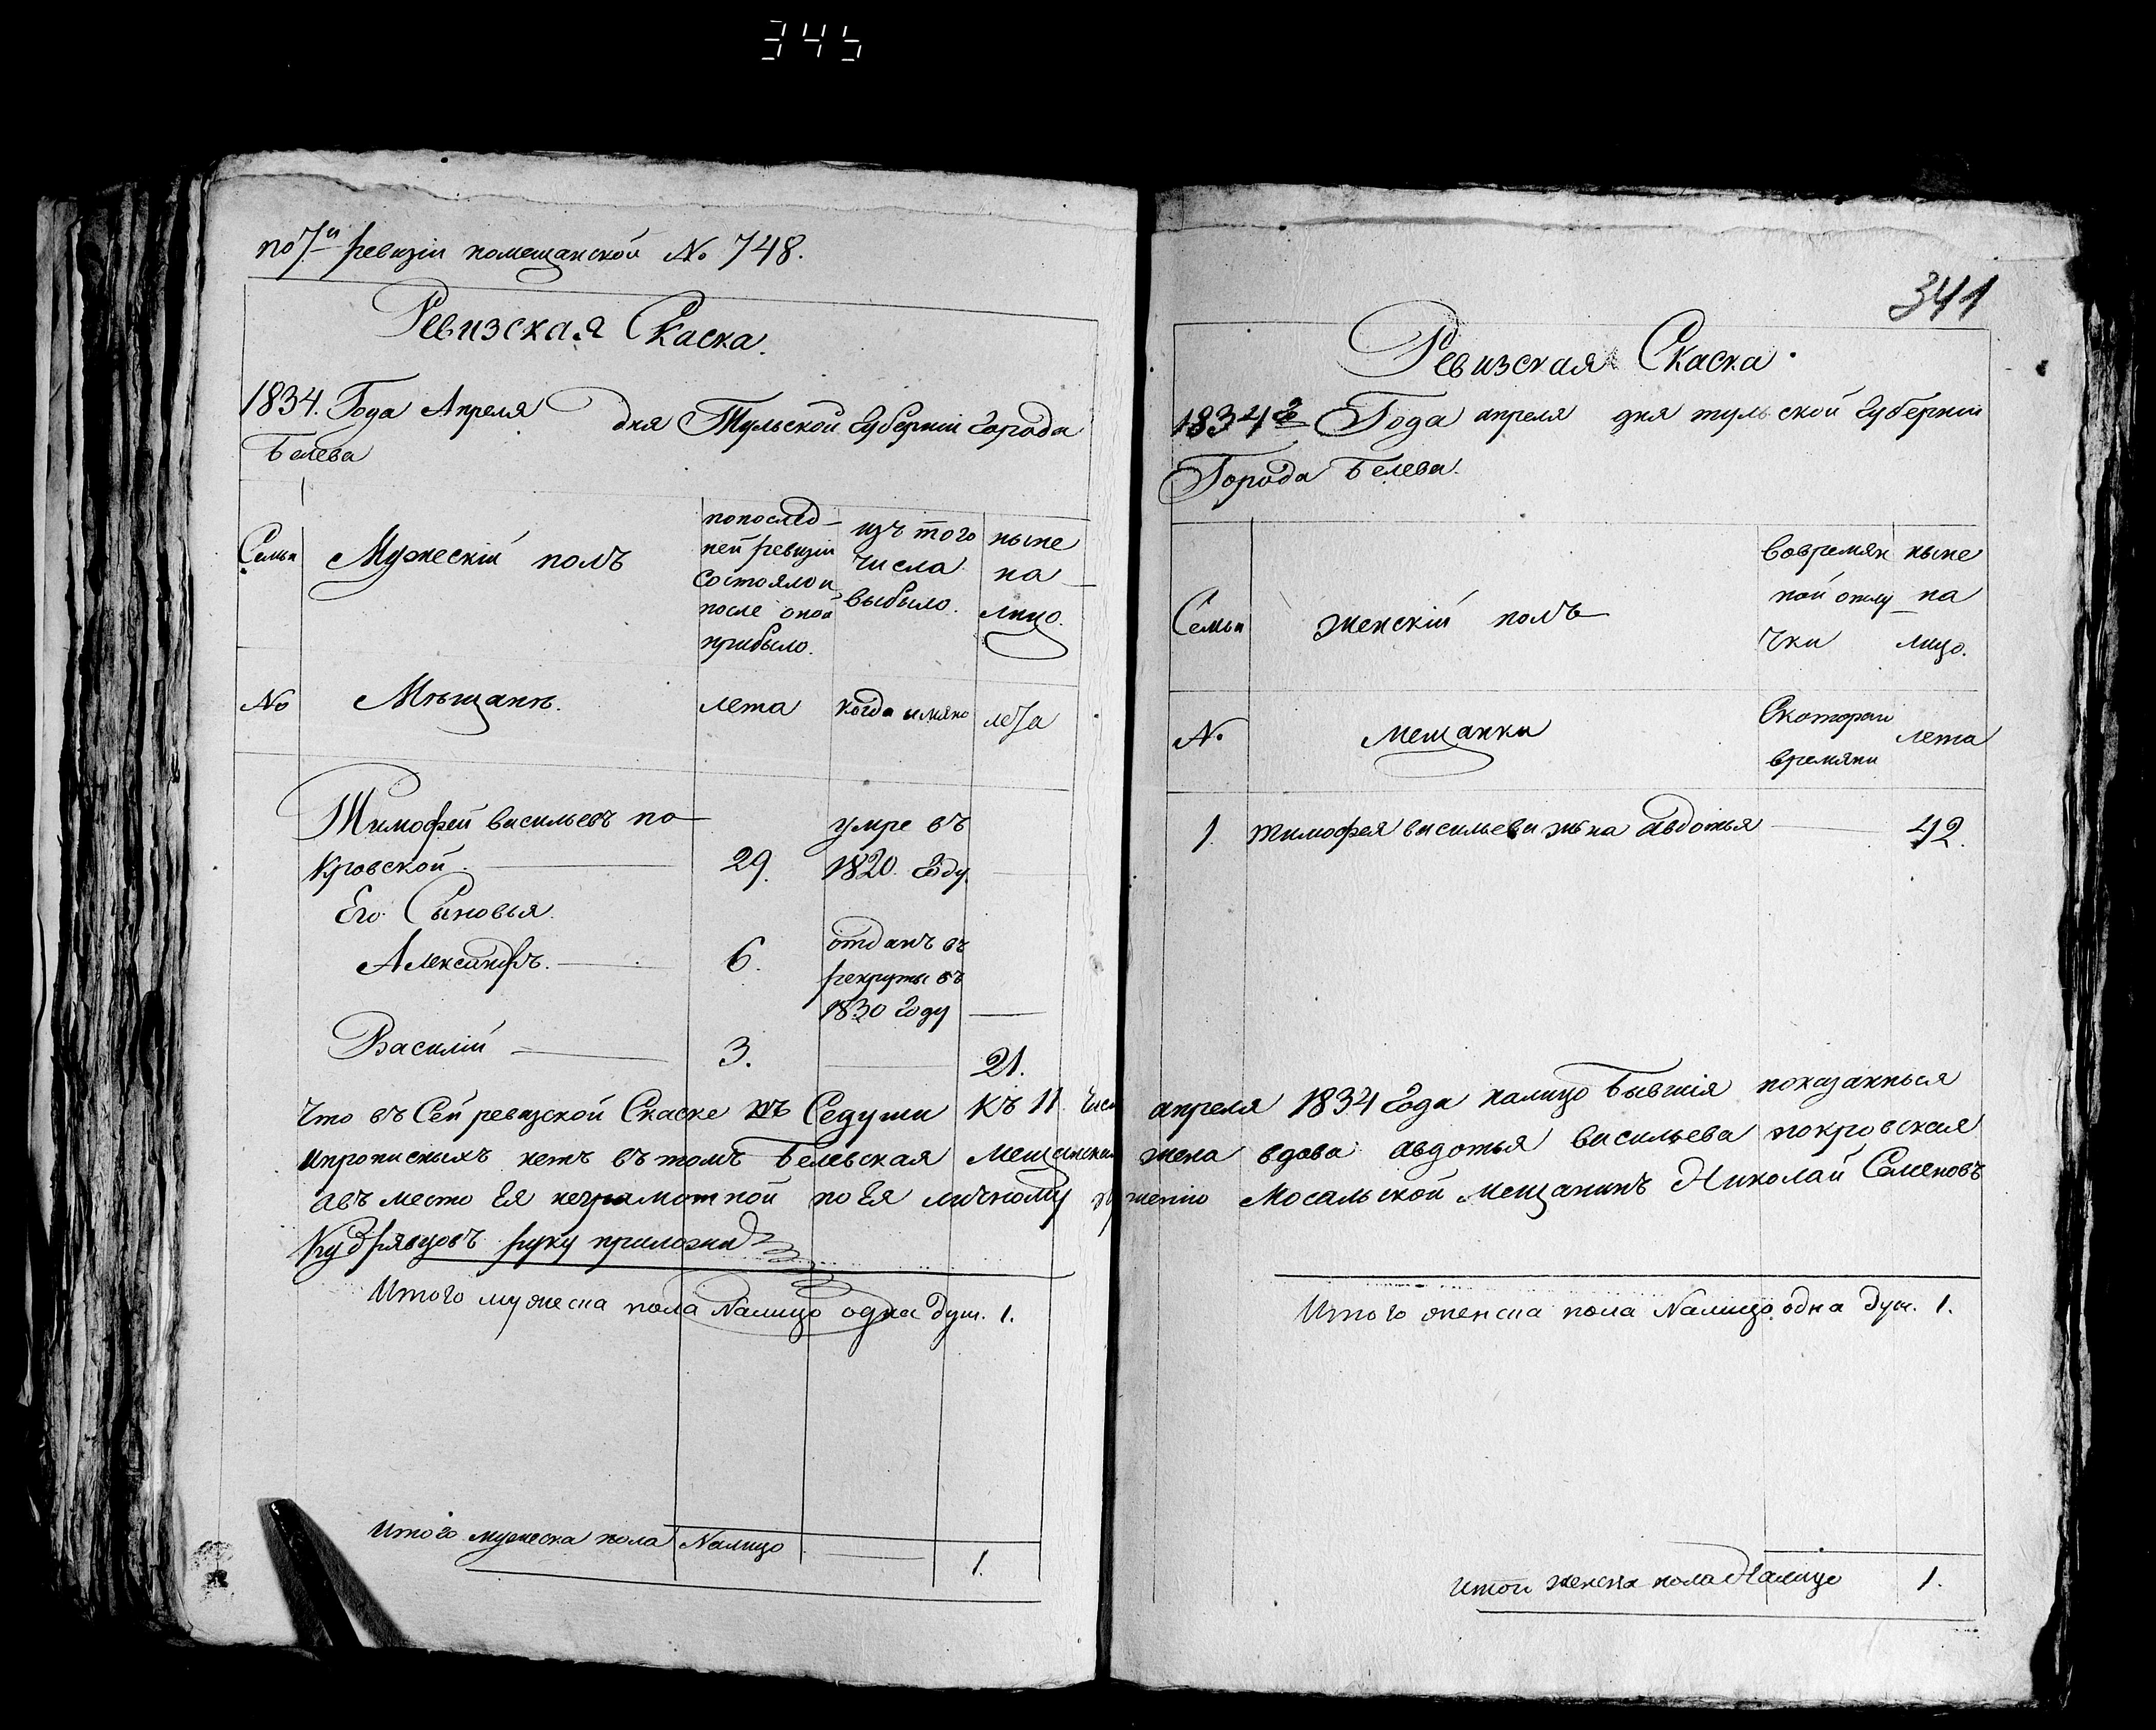 345
по 7й ревизіи помещанской № 748.
Ревизская Скаска.
1834. Года Апреля дня Тульской Губерніи Города
Белева
Семьи
Мужескій полъ
попослед-
ней ревизіи
состояло и
после оной
прибыло.
изъ того
числа
выбыло.
ныне
на
лицо.
№
Мѣщанѣ.
лета
когда имяно
лета
Тимофей васильевъ по
кровской.
29.
умре въ
1820. Году.
Его Сыновья.
Александръ.
6.
отданъ въ
рекруты въ
1830 Году
Василій
3.
21.
Что въ Сей ревизской Скаске Седуши Къ 11 числ
ипрописныхъ нетъ въ томъ Белевская Мещанская
авъ место Ея неграмотной по Ея личному
Кудрявцовъ руку приложилъ
Итого мужеска пола Налицо одна душ. 1.
Итого мужеска пола Налицо 1.
341
Ревизская Скаска.
1834го Года апреля дня тульской Губерніи
Города Белева.
Семьи
женскій полъ
вовремян
ной отлу
чки
ныне
на
лицо.
№
мещанки
Скоторои
времяни
лета
1. тимофея васильева жена Авдотья 42.
апреля 1834 Года налицо Бывшія показанныя
жена вдова авдотья васильева покровская
шенію Мосальской Мещанинъ Николай Семеновъ
Итого женска пола Налицо одна душ. 1.
Итого женска пола Налицо 1.